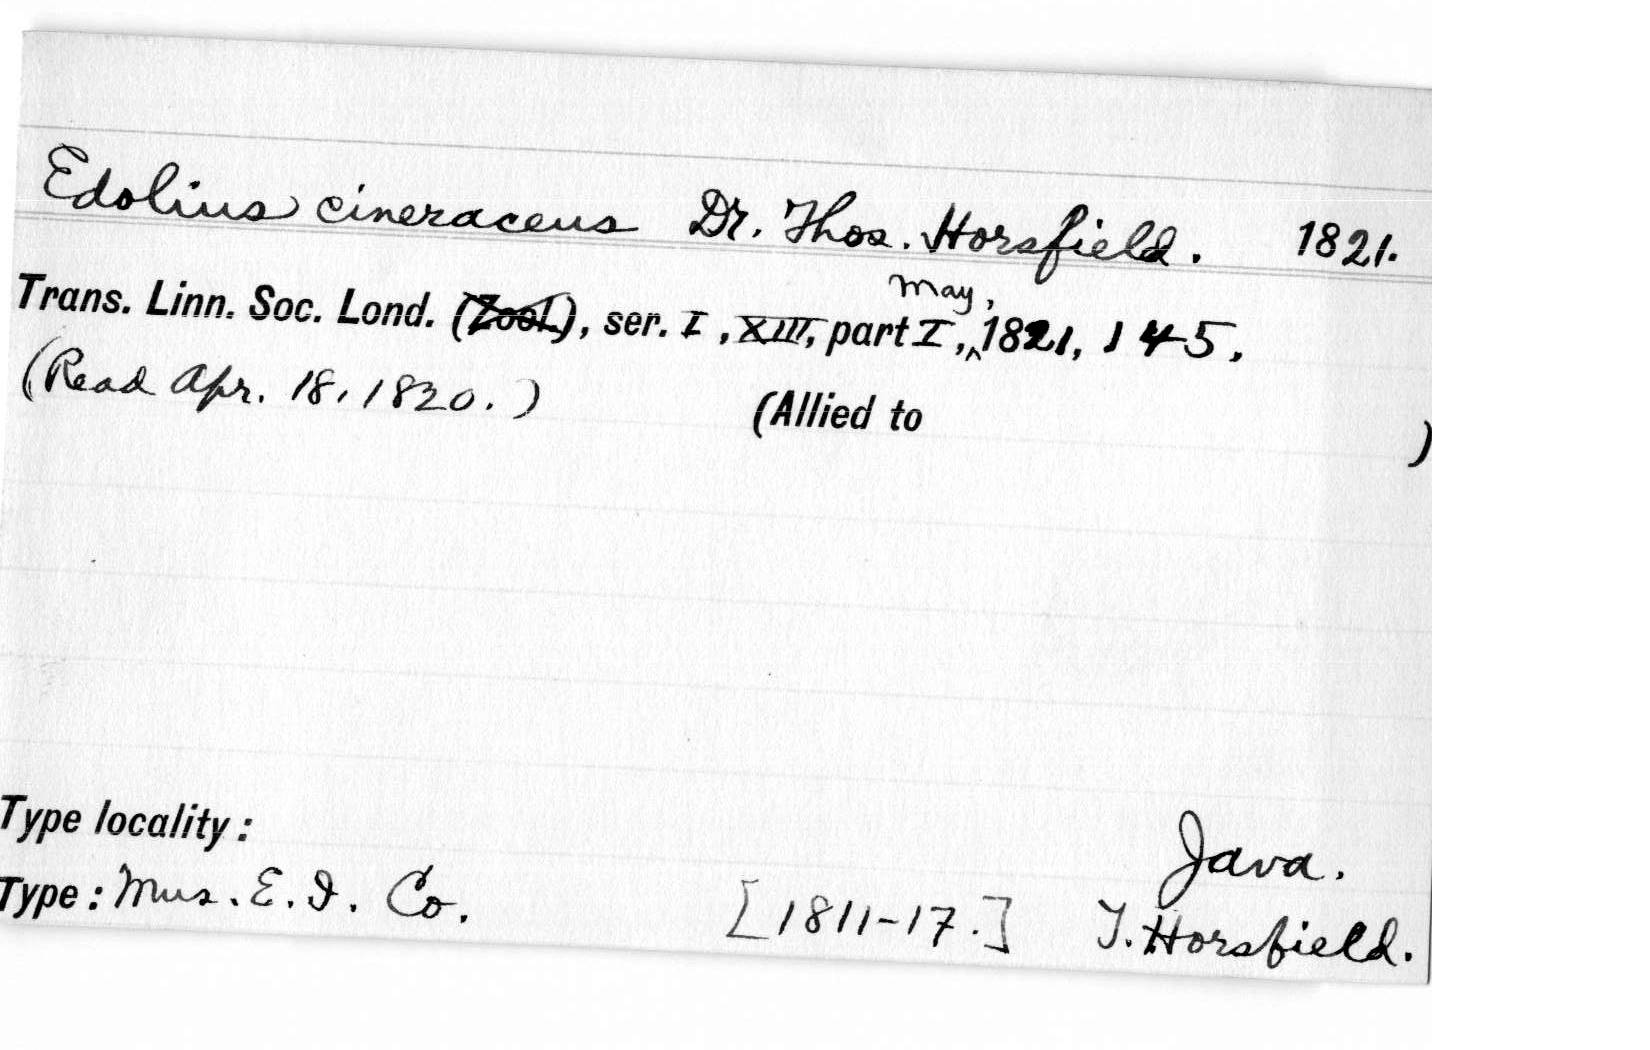 Edolius cineraceus Dr. Thos. Horsfield. 1821.
Trans. Linn. Soc. Lond. (Zool.), ser. I, XIII, part I, May, 1821, 145.
(Read Apr. 18, 1820.) (Allied to )
Type locality: Java.
Type: Mus. E. I. Co. [1811-17.] T. Horsfield.